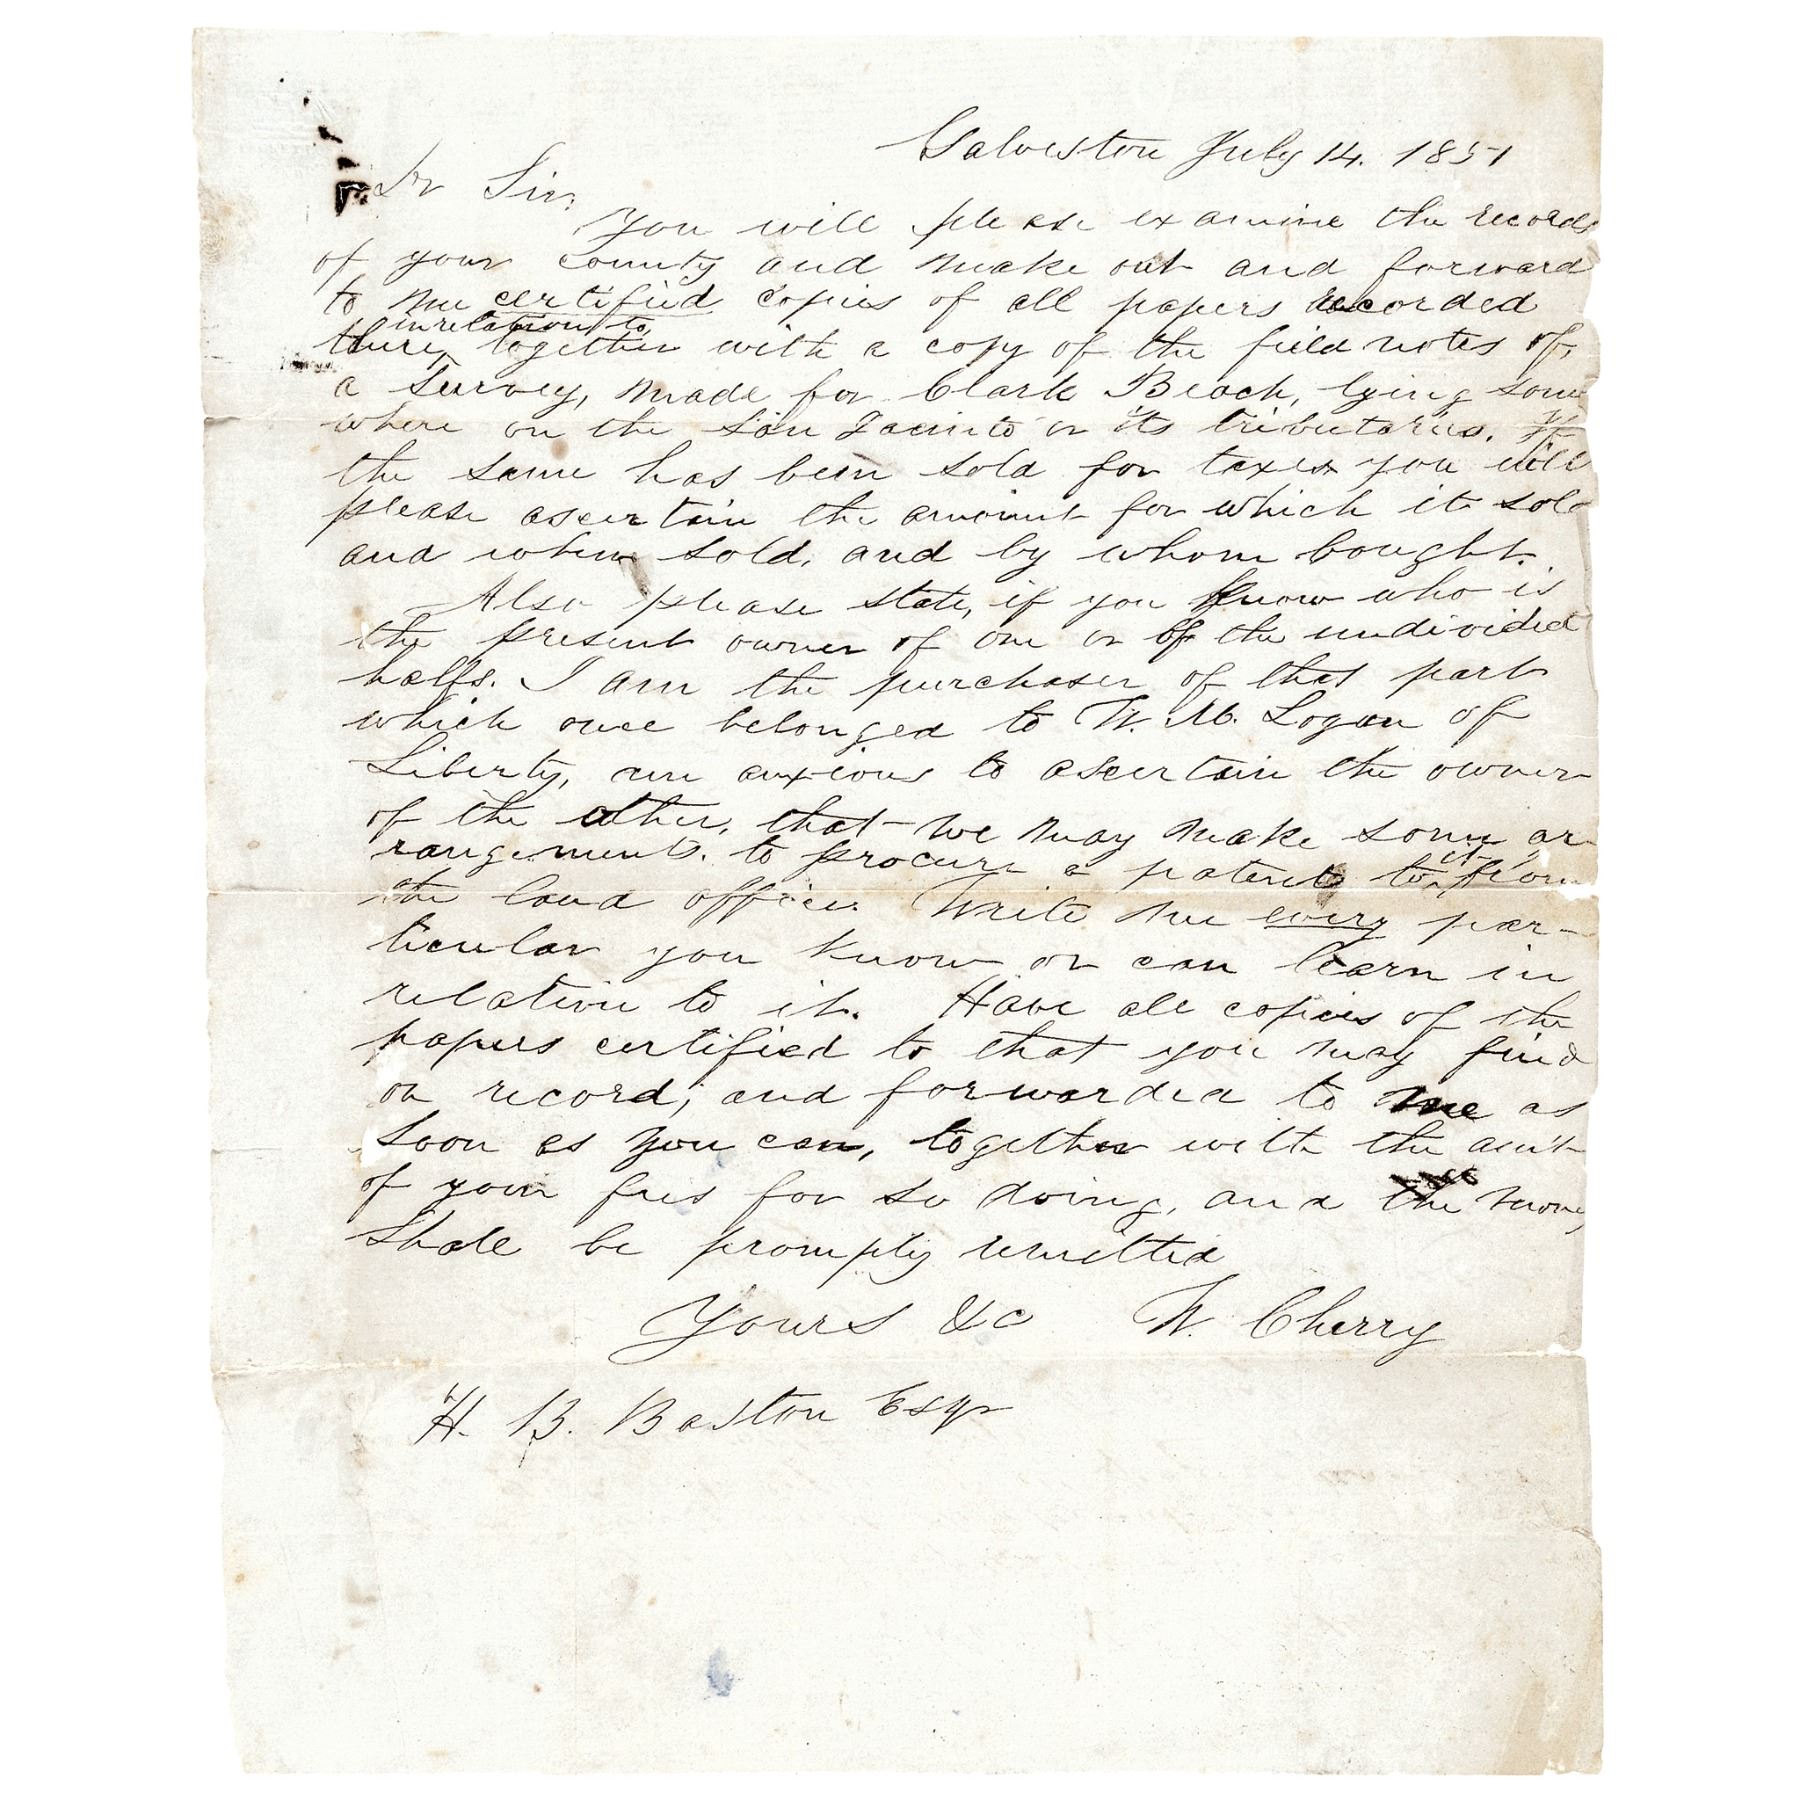 Galveston July 14. 1851
Dr Sir,
You will please examine the records
of your county and make out and forward
to me certified copies of all papers recorded
in relation to
there, together with a copy of the field notes of,
a survey, made for Clark Beach, lying some
where on the San Jacinto or its tributaries. If
the same has been sold for taxes you will
please ascertain the amount for which it sold
and when sold, and by whom bought.
Also please state, if you know who is
the present owner of one or of the undivided
halfs. I am the purchaser of that part
which once belonged to W. M. Logan of
Liberty, am anxious to ascertain the owner
of the other, that we may make some ar-
rangements. to procure a patent to it from
the land office. Write me every par-
ticular you know or can learn in
relation to it. Have all copies of the
papers certified to that you may find
on record; and forwarded to me as
soon as you can, together with the am't
of your fees for so doing, and the money
shall be promptly remitted
Yours &c W. Cherry
H. B. Baston Esqr